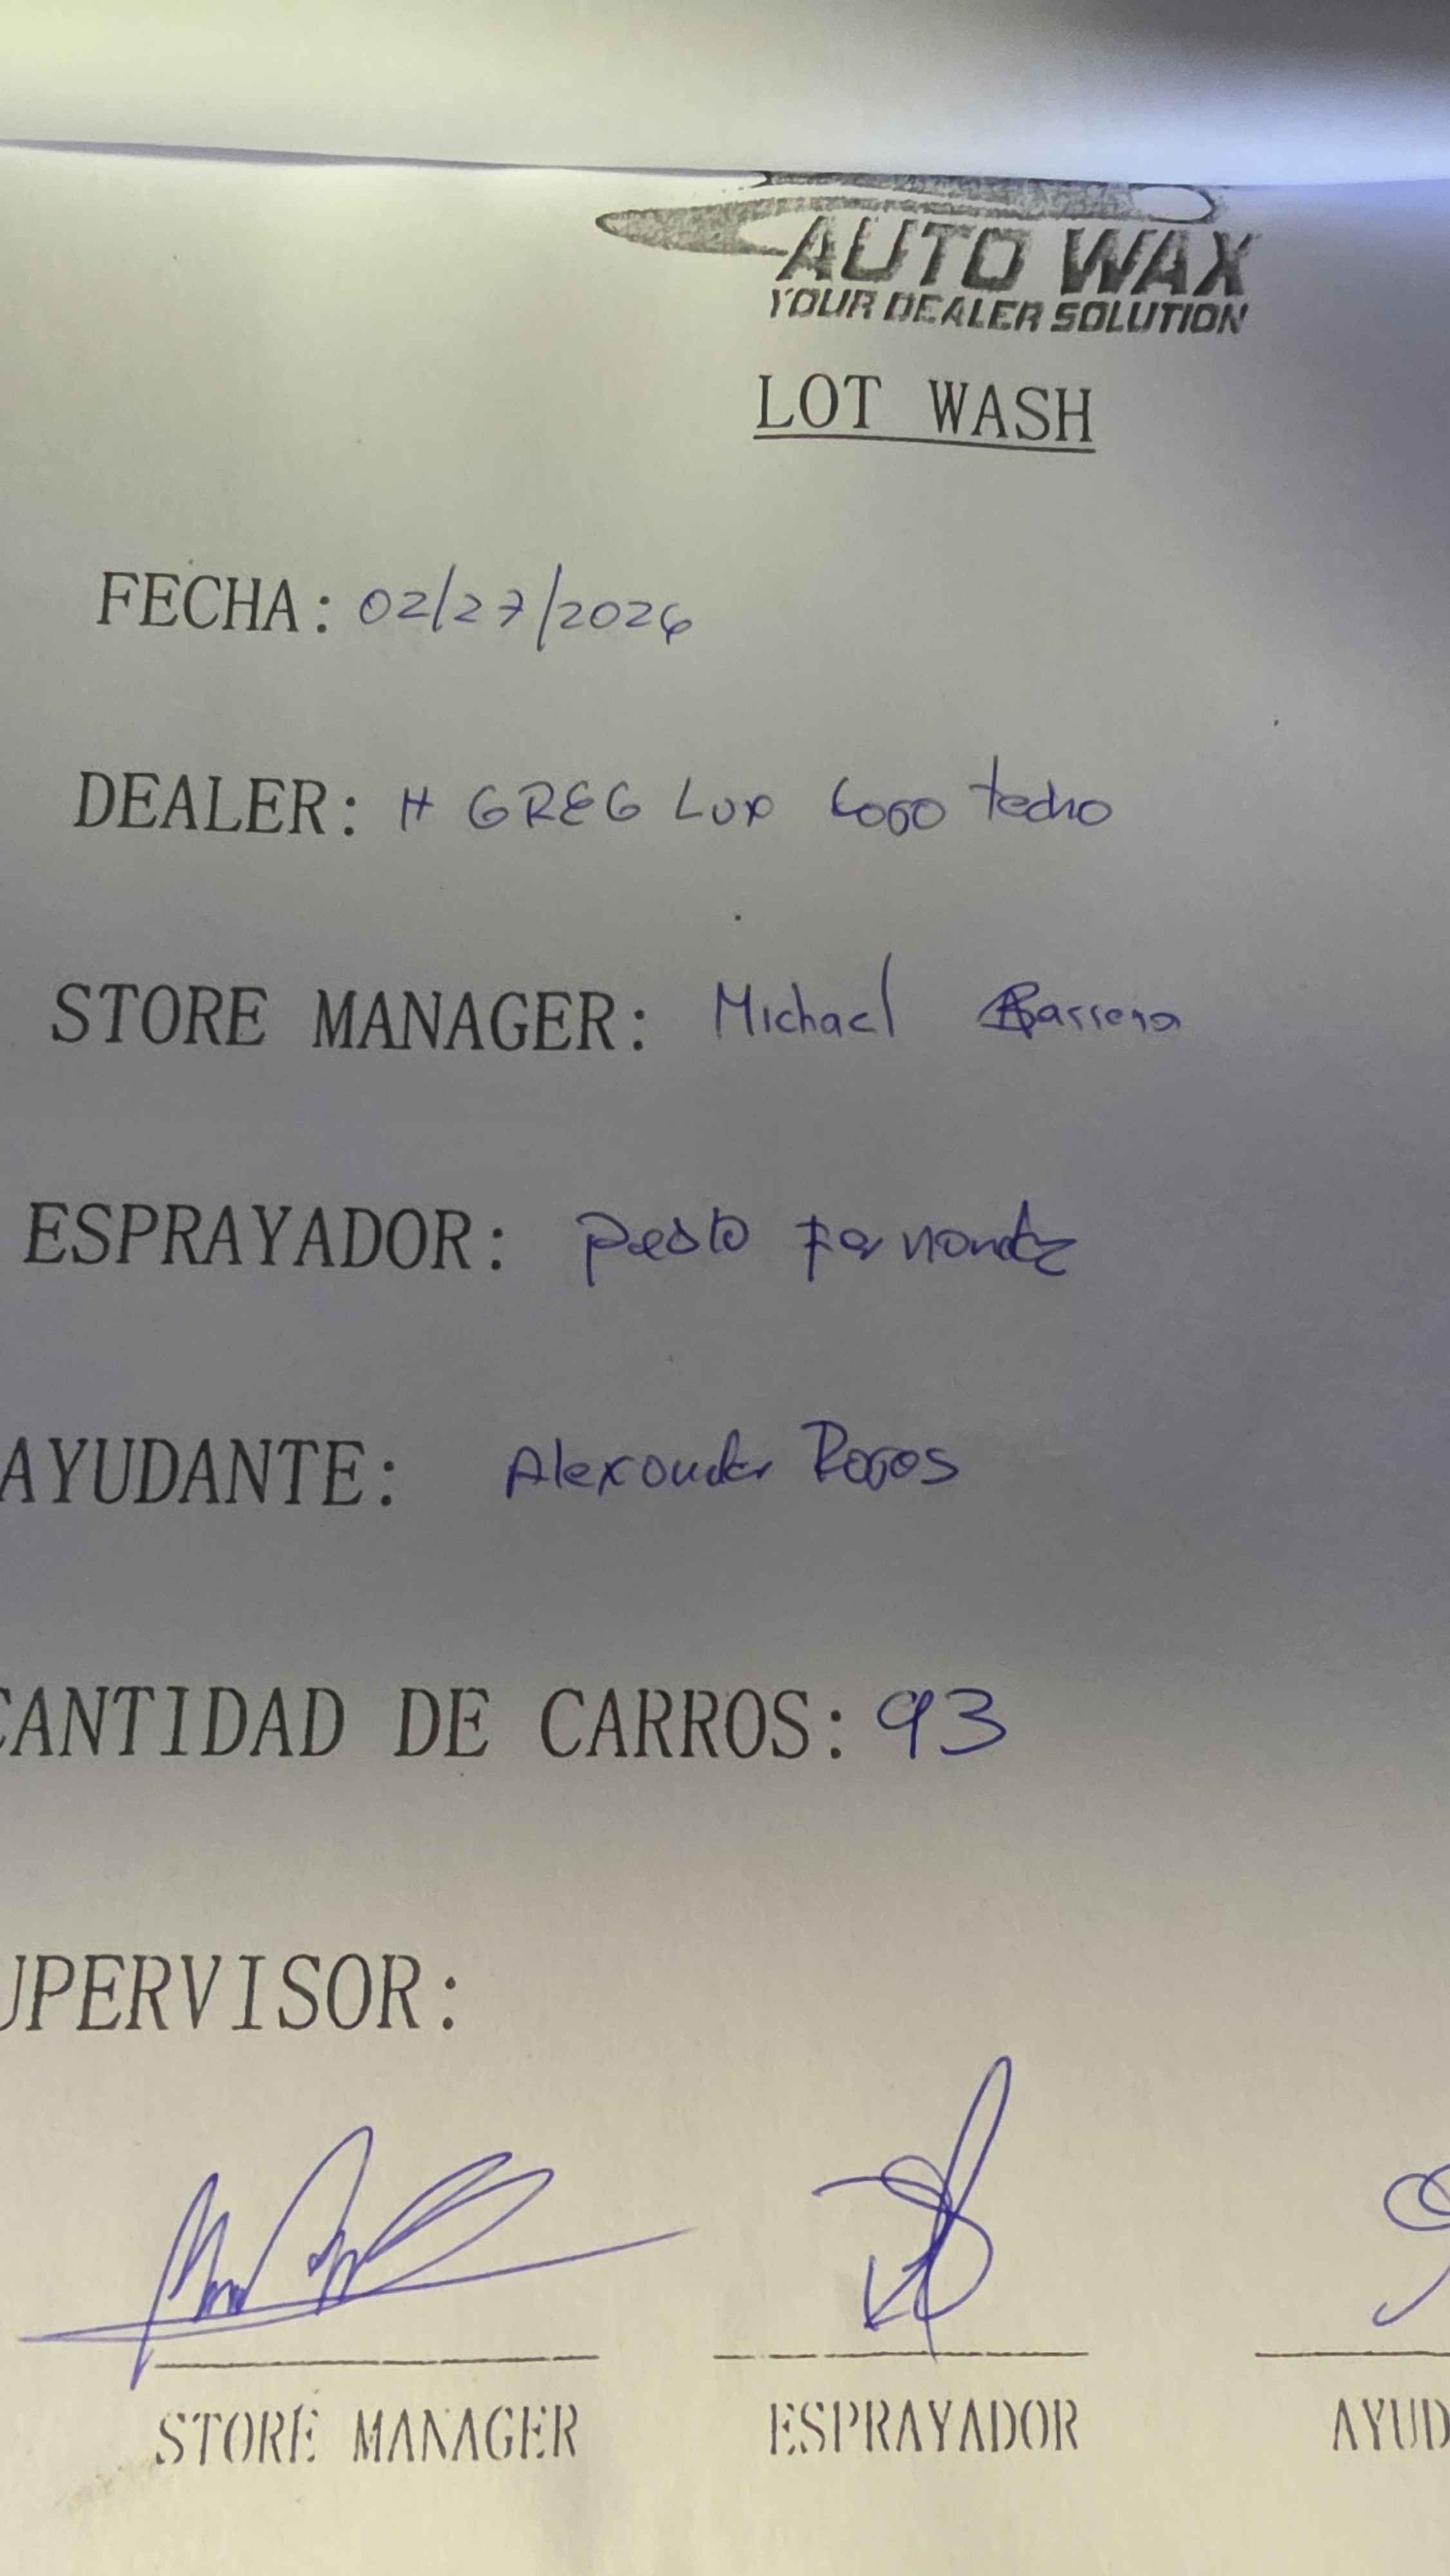 AUTO WAX
YOUR DEALER SOLUTION
LOT WASH
FECHA: 02/27/2026
DEALER: H GREG Lux techo
STORE MANAGER: Michael Barrera
ESPRAYADOR: Pedro Fernandez
AYUDANTE: Alexander Rojas
CANTIDAD DE CARROS: 93
UPERVISOR:
STORE MANAGER ESPRAYADOR AYUD